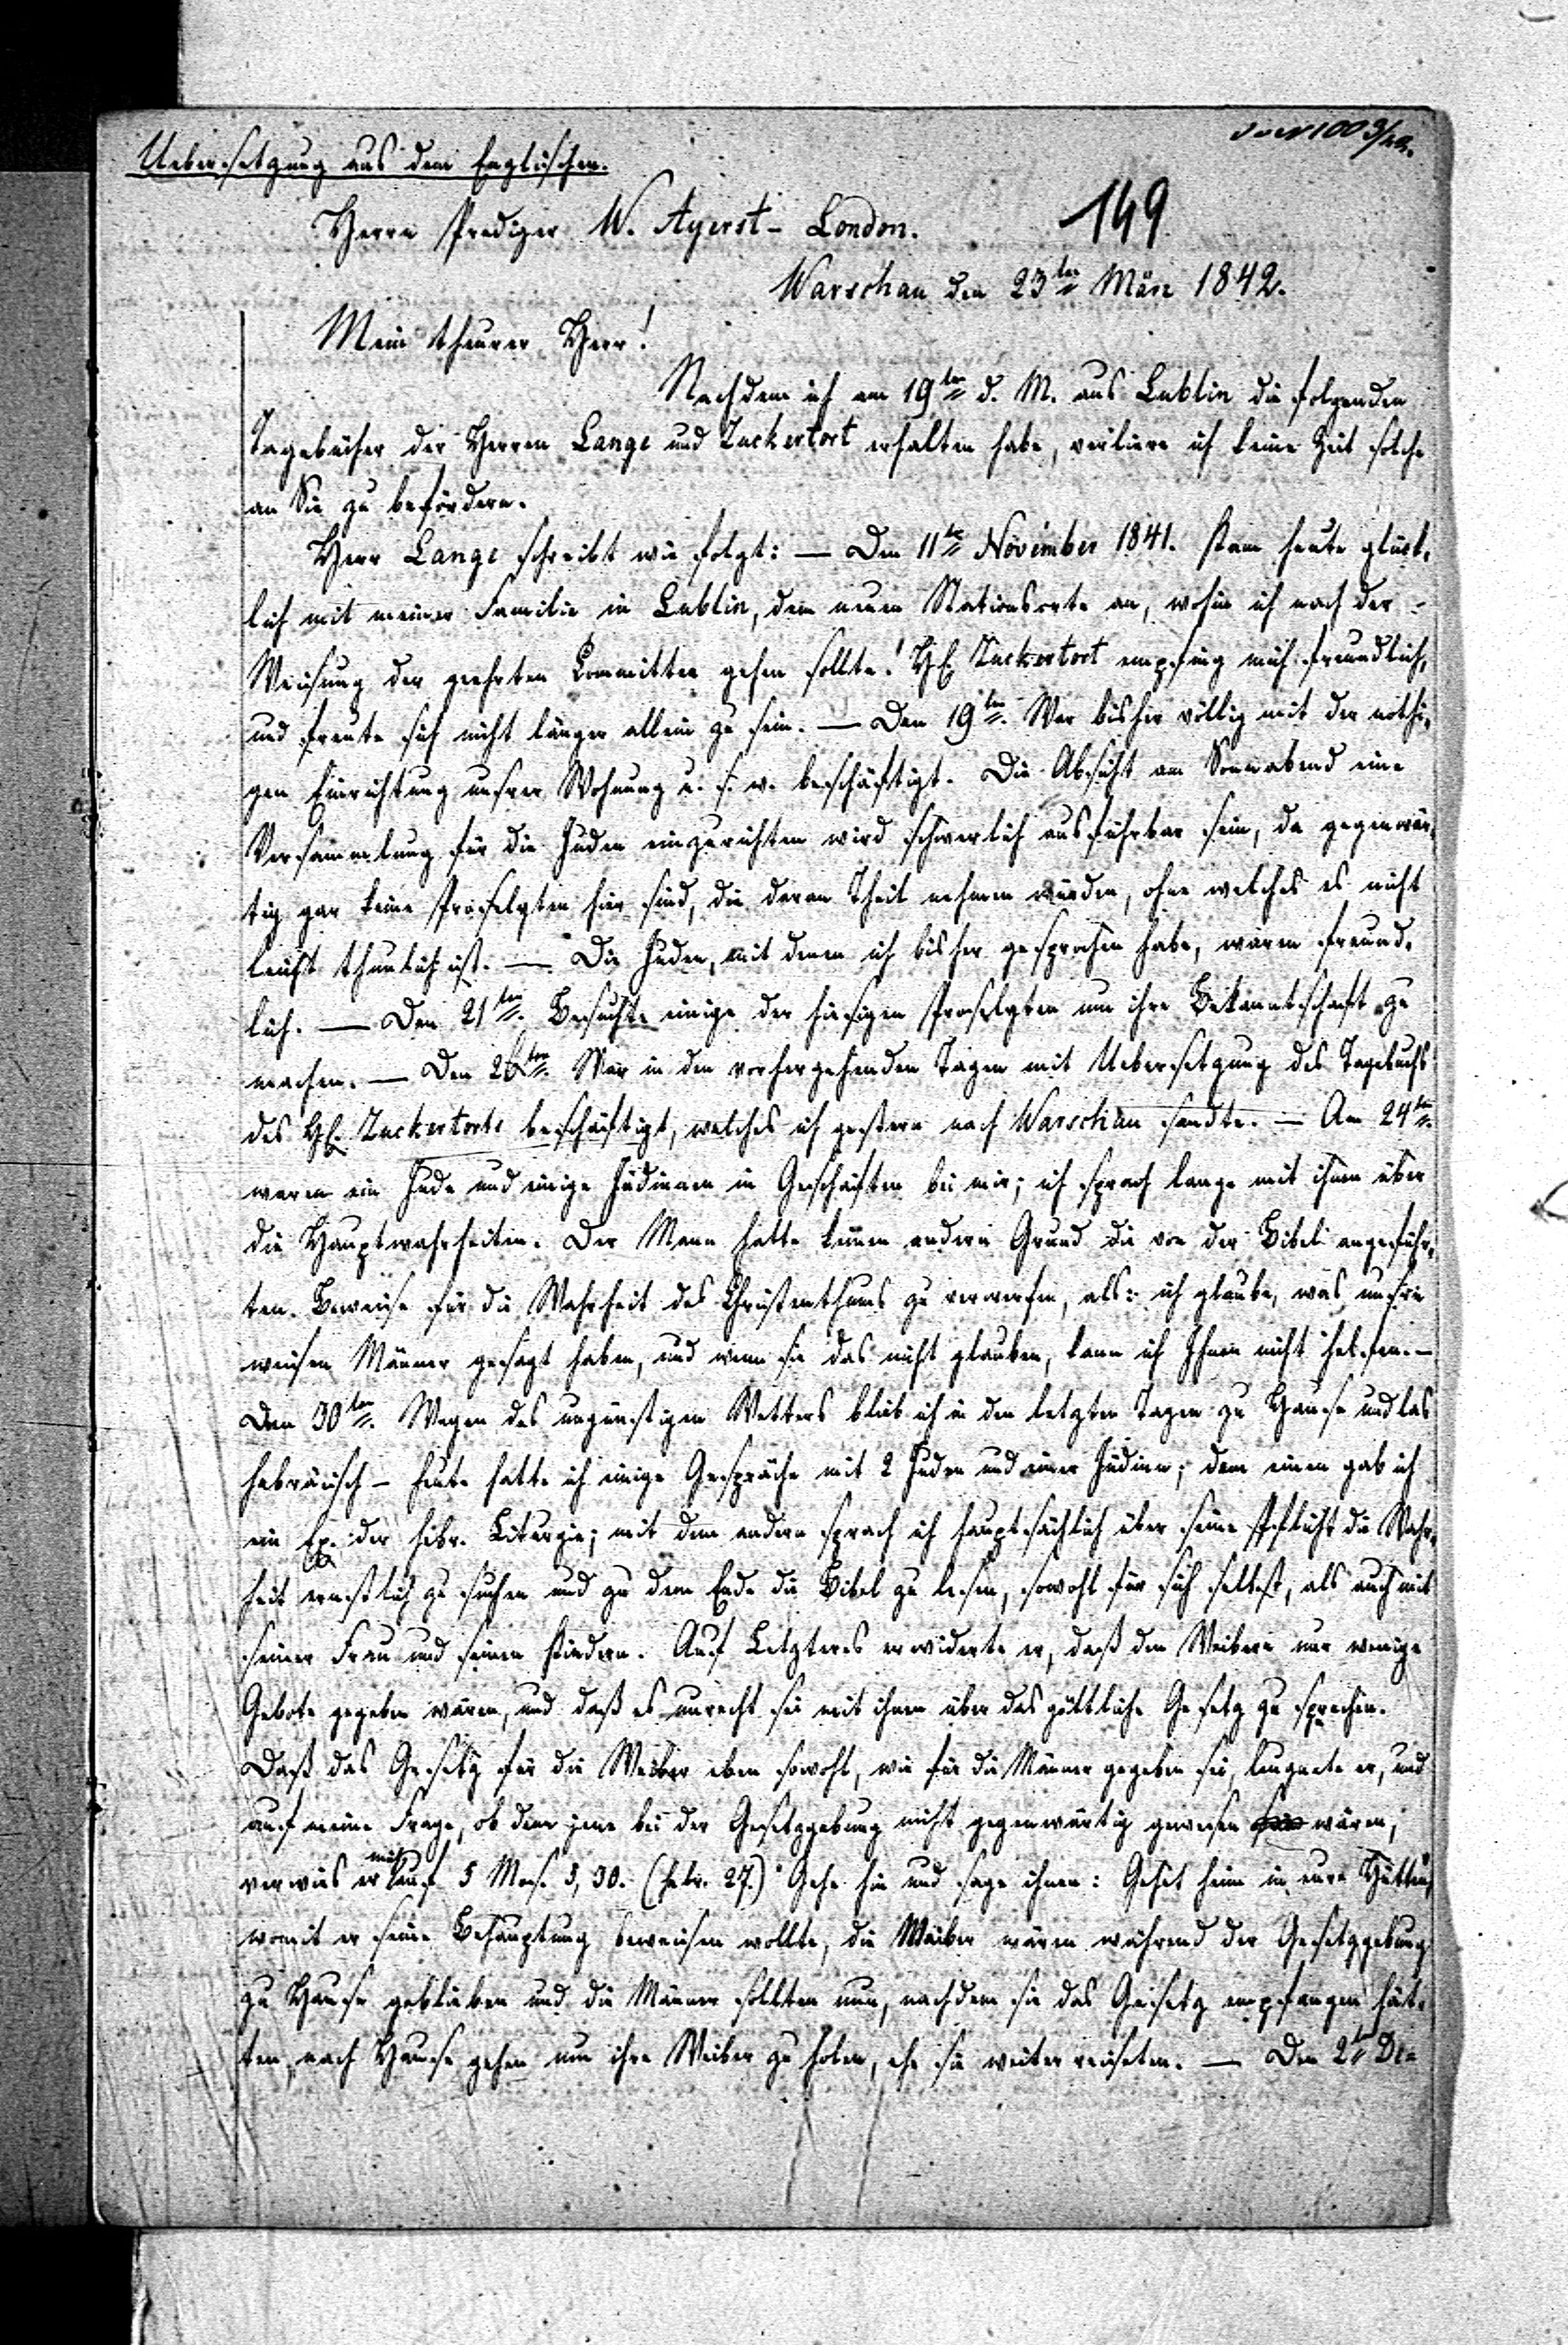 Uebersetzung aus dem Englischen.
149
Herrn Prediger W. Ayerst - London.
Warschau den 23ten März 1842.
Mein theurer Herr!
Nachdem ich am 19ten d. M. aus Lublin die folgenden
Tagebücher der Herren Lange und Zuckertort erhalten habe, verliere ich keine Zeit solche
an Sie zu befördern.
Herr Lange schreibt wie folgt: — Den 11ten November 1841. Kam heute glück-
lich mit meiner Familie in Lublin, dem neuen Stationsorte an, wohin ich nach der
Weisung der geehrten Committee gehen sollte! H. Zuckertort empfing mich freundlich,
und freute sich nicht länger allein zu sein. — Den 19ten. War bisher völlig mit der nöthi-
gen Einrichtung unsrer Wohnung u. s. w. beschäftigt. Die Absicht am Sonnabend eine
Versammlung für die Juden einzurichten wird schwerlich ausführbar sein, da gegenwär-
tig gar keine Proselyten hier sind, die daran Theil nehmen würden, ohne welches es nicht
leicht thunlich ist. — Die Juden, mit denen ich bisher gesprochen habe, waren freund-
lich. — Den 21ten. Besuchte einige der hiesigen Proselyten um ihre Bekanntschaft zu
machen. — Den 26ten. War in den vorhergehenden Tagen mit Uebersetzung des Tagebuchs
des H. Zuckertorts beschäftigt, welches ich gestern nach Warschau sandte. — Am 24ten.
waren ein Jude und einige Jüdinnen in Geschäften bei mir; ich sprach lange mit ihnen über
die Hauptwahrheiten. Der Mann hatte keinen andern Grund die von der Bibel angeführ-
ten Beweise für die Wahrheit des Christenthums zu verwerfen, als: ich glaube, was unsre
weisen Männer gesagt haben, und wenn sie das nicht glauben, kann ich Ihnen nicht helfen. —
Den 30ten. Wegen des ungünstigen Wetters blieb ich in den letzten Tagen zu Hause und las
hebräisch — heute hatte ich einige Gespräche mit 2 Juden und einer Jüdinn; dem einen gab ich
ein Ex. der hebr. Liturgie; mit dem andern sprach ich hauptsächlich über seine Pflicht die Wahr-
heit ernstlich zu suchen und zu dem Ende die Bibel zu lesen, sowohl für sich selbst, als auch mit
seiner Frau und seinen Kindern. Auf Letzteres erwiderte er, daß den Weibern nur wenige
Gebote gegeben wären, und daß es unrecht sei mit ihnen über das göttliche Gesetz zu sprechen.
Daß das Gesetz für die Weiber eben sowohl, wie für die Männer gegeben sei, leugnete er, und
auf meine Frage, ob denn jene bei der Gesetzgebung nicht gegenwärtig gewesen wären,
verwies er mich auf 5 Mos. 5, 30. (hebr. 27.) Gehe hin und sage ihnen: Gehet heim in eure Hütten,
womit er seine Behauptung beweisen wollte, die Weiber wären während der Gesetzgebung
zu Hause geblieben und die Männer sollten nun, nachdem sie das Gesetz empfangen hät-
ten, nach Hause gehen um ihre Weiber zu holen, ehe sie weiter reiseten. — Den 2ten De-